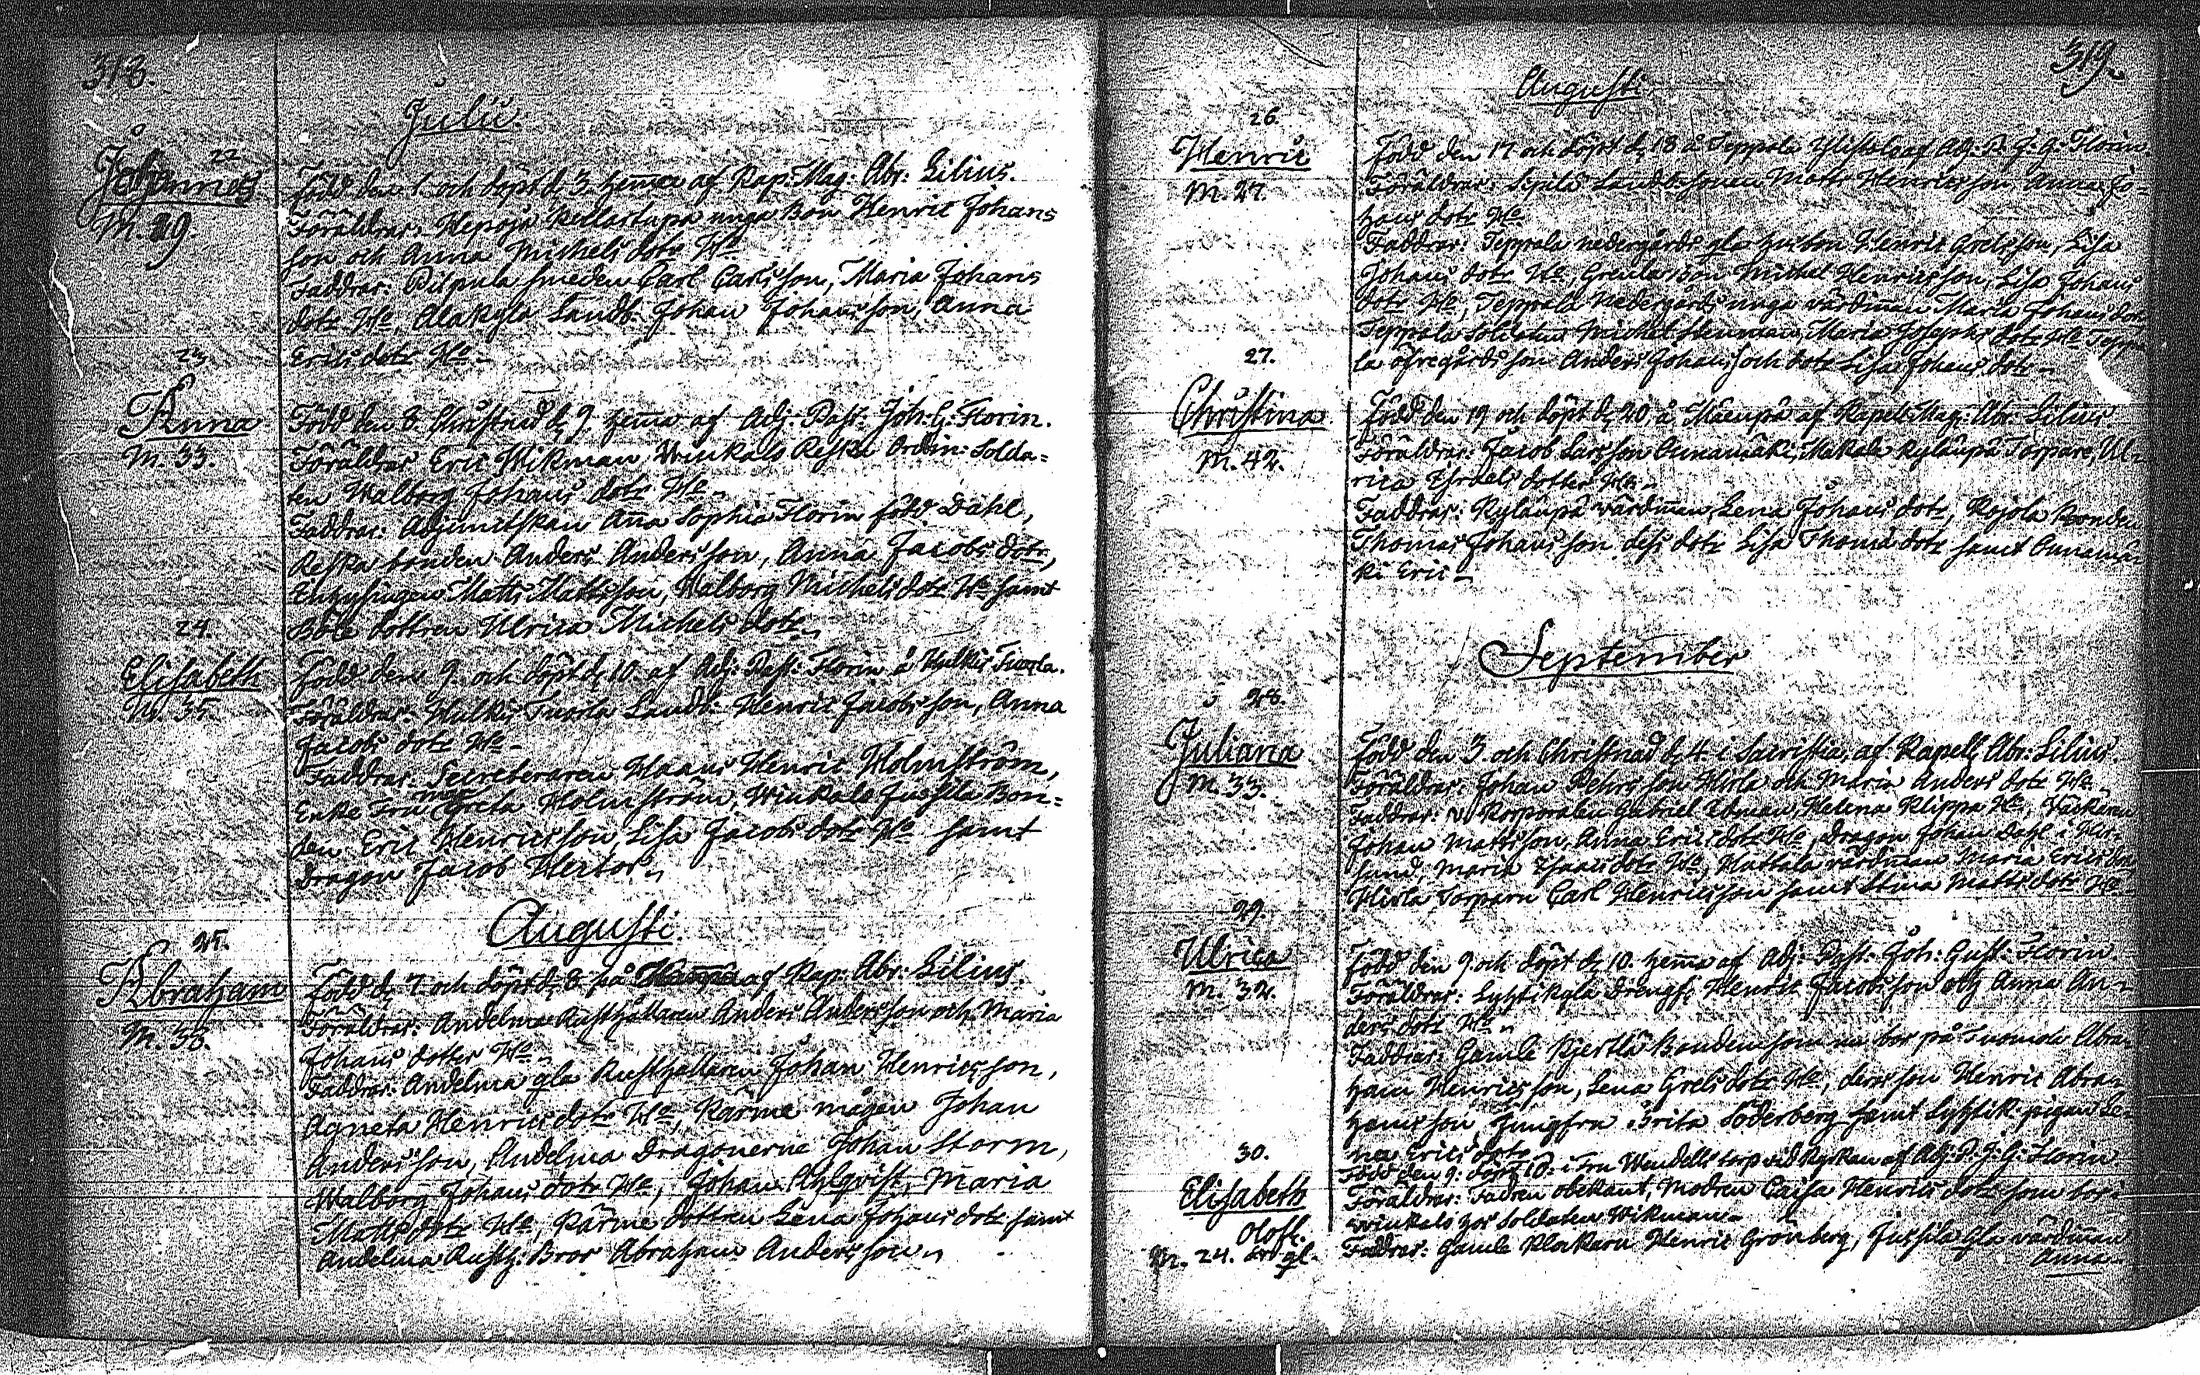 318.
Julii.
22.
Johannes
M. 29.
Född den 1. och döpt d. 3. hemma af Kap: Mag: Abr: Lilius.
Föräldrar: Hepoju Rellastupa unga Bon Henric Johans
son och Anna Michels dotr Ho
Faddrar: Pilpula smeden Carl Carlsson, Maria Johans
dotr Ho, Alakyla Landb. Johan Johansson, Anna
Erics dotr Ho
23.
Anna
M. 33.
Född den 8. Christnad d. 9. hemma af Adj: Past: Joh: G: Florin.
Föräldrar Eric Wikman Winkala Reska Ordin: Solda=
ten Walborg Johans dotr Ho
Faddrar: Adjunctskan Anna Sophia Florin född Dahl,
Reska bonden Anders Andersson, Anna Jacobs dotr,
Matts Mattsson, Walborg Michels dotr Ho samt
Böle dottren Ulrica Michels dotr
24.
Elisabeth
M. 35.
Född den 9. och döpt d. 10. af Adj: Past: Florin å Hulkis Tuorla.
Föräldrar: Hulkis Tuorla Landb: Henric Jacobsson, Anna
Jacobs dotr Ho
Faddrar: Secreteraren Hans Henric Holmström,
Enke Fru Greta Holmström, Winkala Jussila Bon=
den Eric Henricsson, Lisa Jacobs dotr Ho samt
Dragon Jacob Hector
Augusti.
25.
Abraham
M. 38.
Född d. 7. och döpt d. 8. på af Kap: Abr: Lilius.
Föräldrar: Andelma Rusthållaren Anders Andersson och Maria
Johans dotter Ho
Faddrar: Andelma gla Rusthållaren Johan Henricsson,
Agneta Henrics dotr Ho, Kärme mågen Johan
Andersson, Andelma Dragonerne Johan Storm,
Walborg Johans dotr Ho, Johan Ahlqvist, Maria
Matts dotr Ho, Kärme dottren Lena Johans dotr samt
Andelma Rusth: Bror Abraham Andersson
319.
Augusti.
26.
Henric
M. 27.
Född den 17 och döpt d. 18 å Teppala af Adj. P. J. G. Florin.
Föräldrar: Landb. sonen Matts Henricsson, Anna Jo=
hans dotr Ho
Faddrar: Teppala nedergårds gla husbon Henric Grelsson, Lisa
Johans dotr Ho, Greula Bon Michel Henricsson, Lisa Johans
dotr Ho, Teppala Nedergårds unga värdinnan Maria Johans dotr
Teppala Soldaten Michel Maria Josephs dotr Ho Teppa
la öfregårds son Anders Johansson och dotr Lisa Johans dotr
27.
Christina
M. 42.
Född den 19 och döpt d. 20 å af Kapel: Mag: Abr: Lilius
Föräldrar: Jacob Larsson Annamäki, Makala Kylänpä Torpare, Ul=
rica Israels dotter Ho
Faddrar: Kylänpä värdinnan Lena Johans dotr, Kojola Bonden
Thomas Johansson dess dotr Lisa Thomä dotr samt Annamä
ki Eric
September
28.
Juliana
M. 33.
Född den 3. och Christnad d. 4. i Sacristia, af Kapell: Abr: Lilius.
Föräldrar: Johan Pehrsson Hirla och Maria Anders dotr Ho
Faddrar: v. Korporalen Gabriel Edman, Helena Klippa Ho,
Johan Mattsson, Anna Erics dotr Ho, Dragon Johan Dahl i Hir=
Maria Isaacs dotr Ho, Hattala värdinnan Maria Erics dotr
Hirla Torparn Carl Henricsson samt Stina Matts dotr Ho
29.
Ulrica
M. 32.
Född den 9. och döpt d. 10. hemma af Adj: Past: Joh: Gust: Florin
Föräldrar: Lyhtikyla Drengs. Henric Jacobsson och Anna An=
ders dotr Ho
Faddrar: Gamle Kjertla Bonden som nu bor på Tuomola Abra
ham Henricsson, Lena Grels dotr Ho, deras son Henric Abra=
hamsson, Jungfru Brita Söderberg samt Lyhtik. pigan Le=
na Erics dotr
30.
Elisabeth
Oloffl.
M. 24. gl.
Född den 9. döpt 10. i Fru Wendells torp vid Kyrkan af Adj. P. J. G. Florin
Föräldrar: Fadren obekant, Modren Caisa Henrics dotr som bor i
Winkala hos Soldaten Wikman
Faddrar: Gamle Klockarn Henric Grönberg, Jussila gla värdinnan
Anna